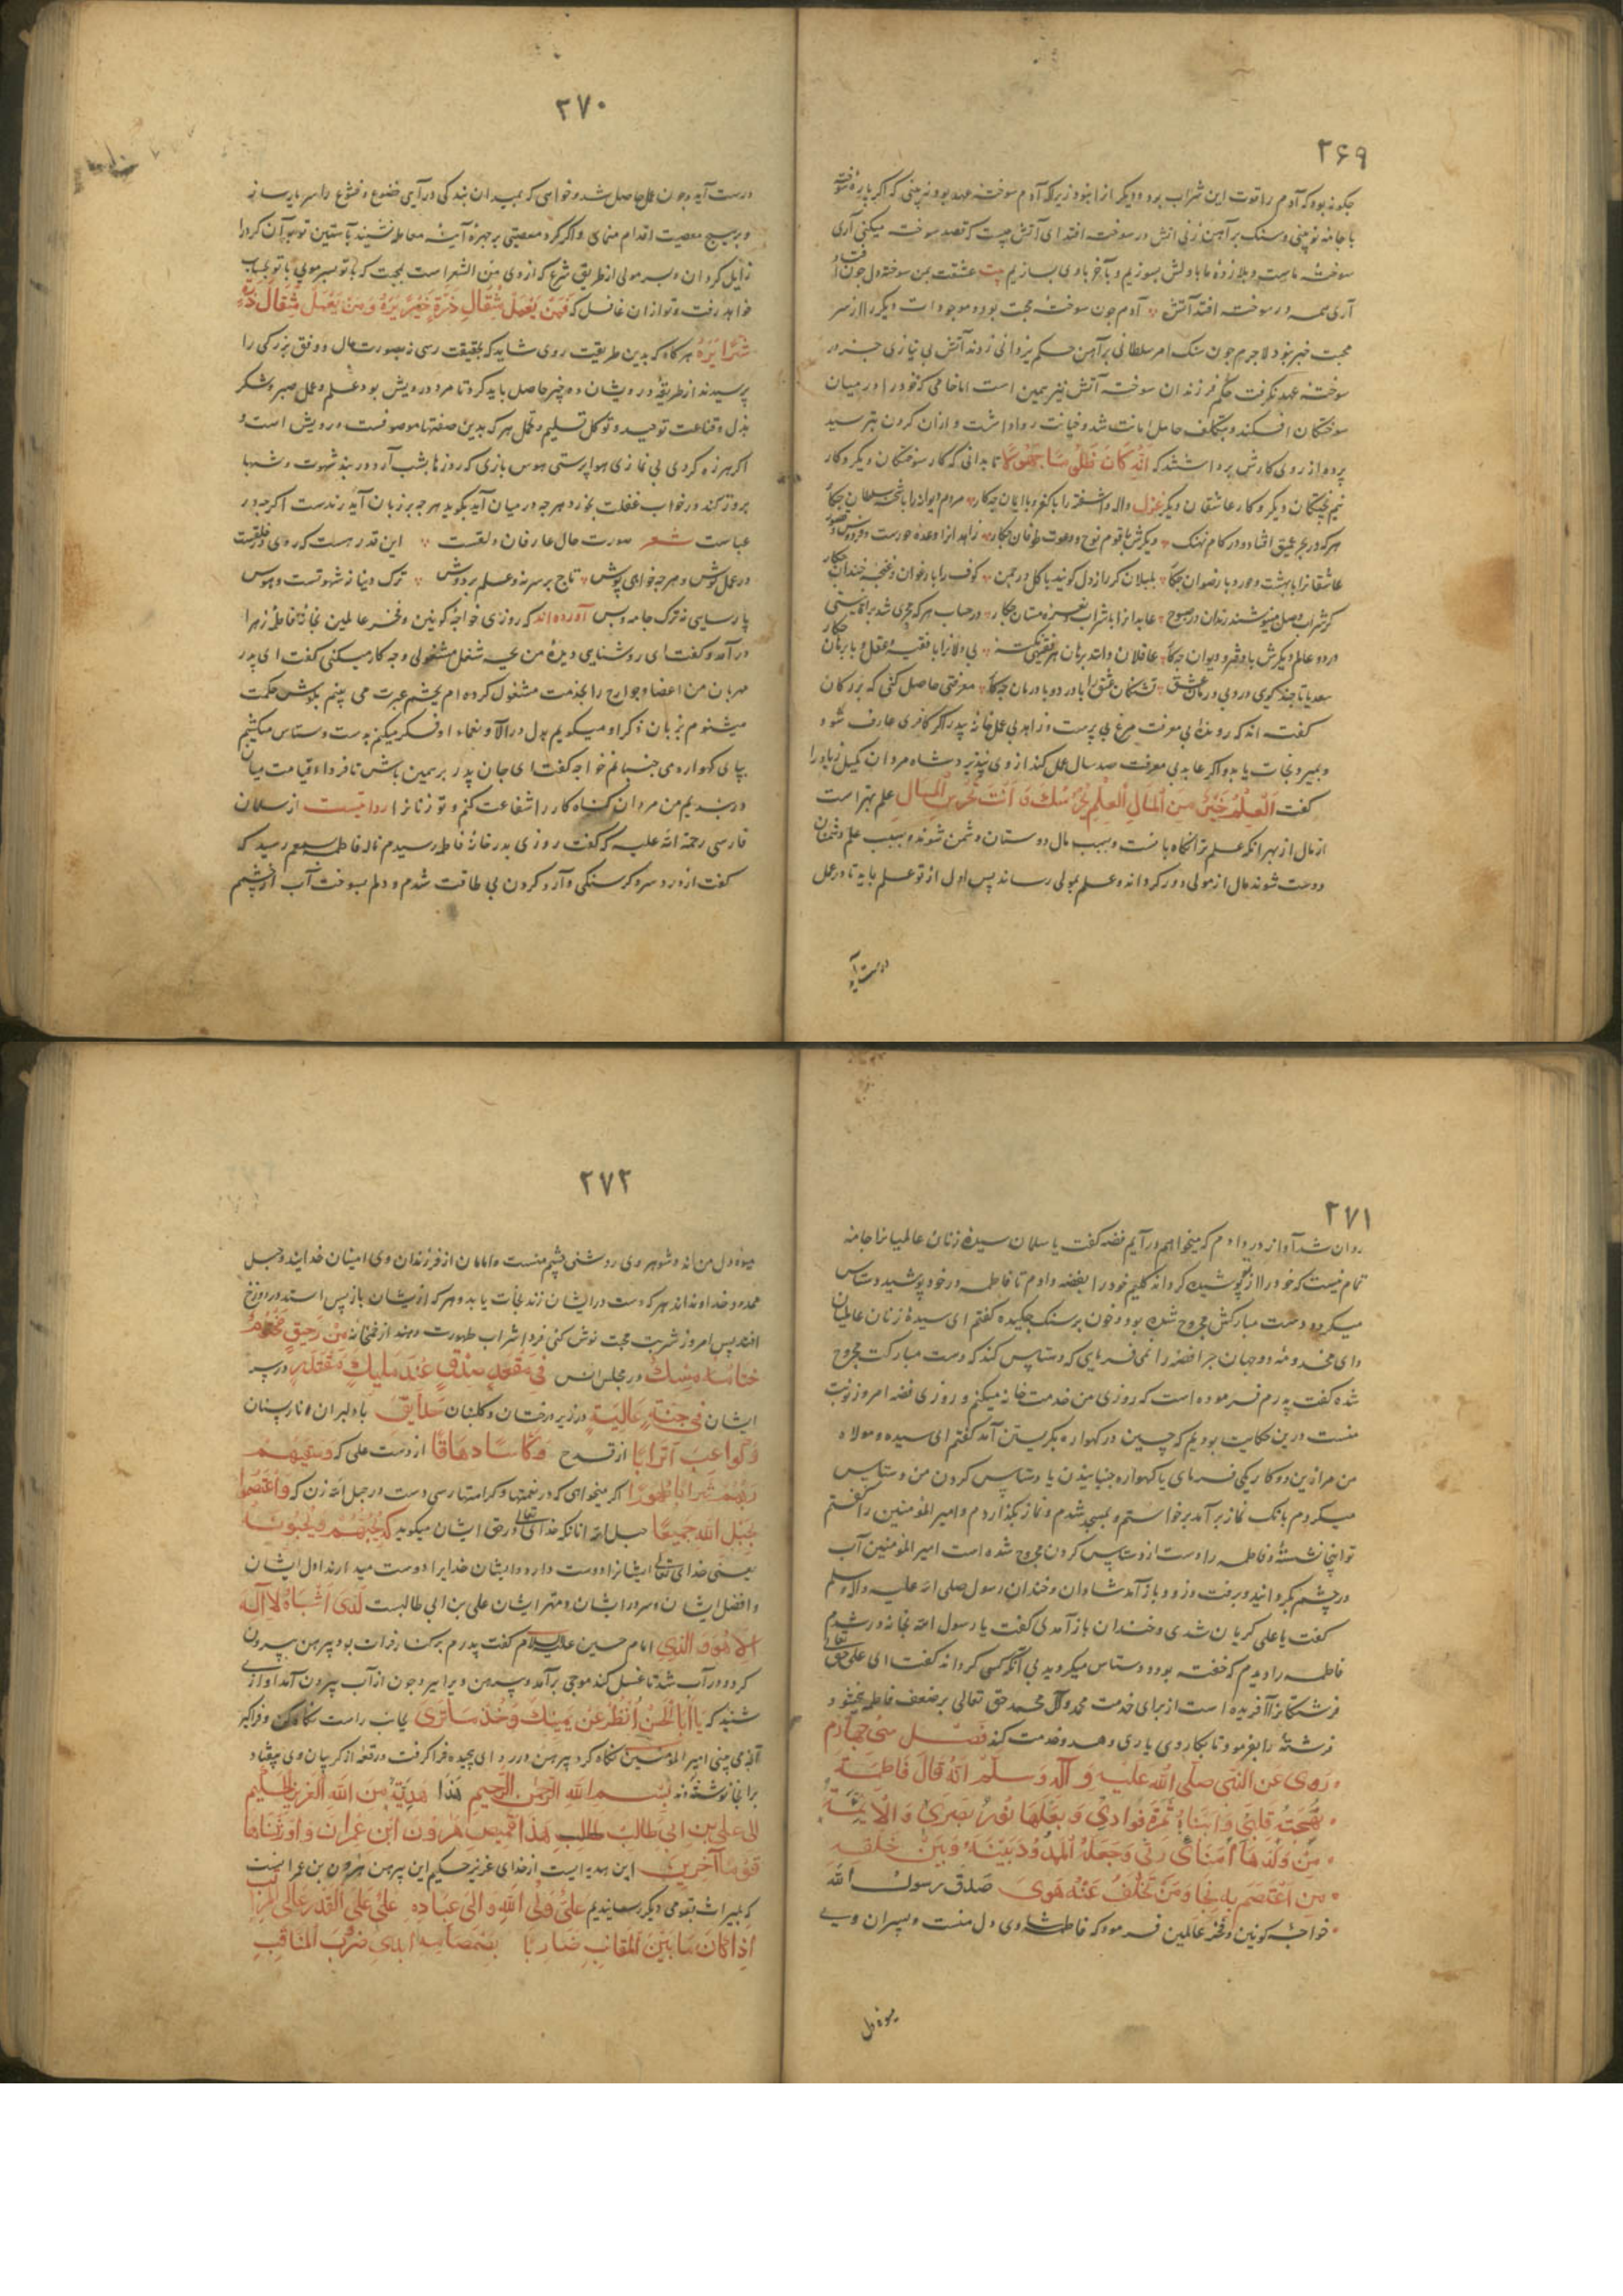 ۲۶۹
چکونه بود که آدم را قوت این شراب بود و دیکر از انبود زیراکه آدم سوخته عهد بود نه بینی که اکر پاره سوخته
با جامه نو بینی و سنک بر آهن زنی اتش در سوخته افتد ای آتش چیست که قصد سوخته میکنی آری
سوخته ماست و بلا زده ما با دلش بسوزیم و بآخر با وی بسازیم بیت عشقت بمن سوخته دل چون افتاد
آری همه در سوخته افتد آتش آدم چون سوخته محبت بود و موجودات دیکر را از سر
محبت خبر نبود لاجرم چون سنک امر سلطانی بر آهن حکم یزدانی زدند آتش بی نیازی جز در
سوخته عهد نکرفت حکم فرزندان سوخته آتش نیز همین است اما خامی که خود را در میان
سوختکان افکند و بتکلف حامل امانت شد و خیانت روا داشت و ازان کردن بترسید
پرده از روی کارش برداشتند که انه کان ظلوما جهولا تا بدانی که کار سوختکان دیکر و کار
نیم پختکان دیکر و کار عاشقان دیکر غزل واله و آشفته را با کفر و با ایمان چه کار مردم دیوانه را با شحنه سلطان چکار
هر که در بحر عمیق افتاد و در کام نهنک دیکرش با قوم نوح و دعوت طوفان چکار زاهدانرا وعده حورست و فردوس و قصور
عاشقانرا با بهشت و حور و با رضوان چکار بلبلان کر راز دل کویند با کل در چمن کوف را با ارغوان و غنچه خندان چکار
کر شراب وصل مینوشند رندان در صبوح عابدانرا با شراب و غمزه مستان چکار در حساب هر که مجری شد برات نیستی
در دو عالم دیکرش با دفتر و دیوان چه کار عاقلان دانند برهان هر فقیهی بی دلانرا با فقیه و عقل و با برهان چکار
سعدیا تا چند کوی درد بی درمان عشق تشنکان عشق را با درد و با درمان چه کار معرفتی حاصل کنی که بزرکان
کفته اند که رونده بی معرفت مرغ بی پرست و زاهد بی عمل خانه بیدر اکر کافری عارف شود
و بمیرد نجات یابد و اکر عابد بی معرفت صد سال عمل کند از وی نپذیرد شاه مردان کمیل زیاد را
کفت العلم خیر من المال العلم یحرسک و انت تحرس المال علم بهتر است
از مال از بهر انکه علم ترا نکاه بانست و بسبب مال دوستان دشمن شوند و بسبب علم دشمنان
دوست شوند مال از مولی دور کرداند و علم بمولی رساند پس اول از تو علم باید تا در عمل
درست آید
۲۷۰
درست آید و چون عمل حاصل شد و خواهی که بمیدان بندکی درآیی خضوع و خشوع را سرمایه ساز
و بر هیچ معصیت اقدام منمای و اکر کرد معصیتی بر چهره آینه معامله نشیند بآستین توبه آن کرد را
زایل کردان و بسر مولی از طریق شرع که از وی من الشعر است بجهت که با تو بسر مویی با تو بحساب
خواهد رفت و تو از ان غافل که فمن یعمل مثقال ذرة خیرا یره و من یعمل مثقال ذرة
شرا یره هر کاه که بدین طریقت روی شاید که بحقیقت رسی نه بصورت مال و وفق بزرکی را
پرسیدند از طریقه درویشان ده چیز حاصل باید کرد تا مرد درویش بود علم و عمل صبر و شکر
بذل و قناعت توحید و توکل تسلیم و تحمل هر که بدین صفتها موصوفست درویش است و
اکر هرزه کردی بی نمازی هواپرستی هوس بازی که روزها بشب آرد در بند شهوت و شبها
بروز کند در خواب غفلت بخورد هر چه در میان آید بکوید هر چه بر زبان آید رندست اکر چه در
عباست شعر صورت حال عارفان دلقست این قدر هست که روی در خلقست
در عمل کوش و هر چه خواهی پوش تاج بر سر نه و علم بر دوش ترک دینا نه شهوتست و هوس
پارسایی نه ترک جامه و بس آورده اند که روزی خواجه کونین و فخر عالمین بخانه فاطمه زهرا
درآمد و کفت ای روشنایی دیده من بچه شغل مشغولی و چه کار میکنی کفت ای پدر
مهربان من اعضا و جوارح را بخدمت مشغول کرده ام بچشم عبرت می بینم بکوش حکمت
میشنوم بزبان ذکر او میکویم بدل در آلاء و نعماء او فکر میکنم بدست دستاس میکشم
بپای کهواره می جنبانم خواجه کفت ای جان پدر بر همین باش تا فرداء قیامت میان
دربندیم من مردان کناه کار را شفاعت کنم و تو زنانرا روایتست از سلمان
فارسی رحمة الله علیه که کفت روزی بدر خانه فاطمه رسیدم ناله فاطمه بسمعم رسید که
کفت از درد سر و کرسنکی و آرد کردن بی طاقت شدم و دلم بسوخت آب از چشمم
۲۷۱
روان شد آواز در دادم که میخواهم درآیم فضه کفت یا سلمان سیده زنان عالمیانرا جامه
تمام نیست که خود را از تو پوشیده کرداند کلیم خود را بفضه دادم تا فاطمه در خود پوشید دستاس
میکرد و دست مبارکش مجروح شده بود و خون بر سنک چکیده کفتم ای سیده زنان عالمیان
وای مخدومه دو جهان چرا فضه را نمی فرمایی که دستاس کند که دست مبارکت مجروح
شده کفت پدرم فرموده است که روزی من خدمت خانه میکنم و روزی فضه امروز نوبت
منست درین حکایت بودیم که حسین در کهواره بکریستن آمد کفتم ای سیده و مولاه
من مرا زین دو کار یکی فرمای یا کهواره جنبانیدن یا دستاس کردن من دستاس
میکردم بانک نماز برآمد برخواستم و بمسجد شدم و نماز بکذاردم و امیر المؤمنین را کفتم
تو اینجا نشسته و فاطمه را دست از دستاس کردن مجروح شده است امیر المؤمنین آب
در چشم بکردانید و برفت و زود باز آمد شادان و خندان رسول صلی الله علیه و آله وسلم
کفت یا علی کریان شدی و خندان باز آمدی کفت یا رسول الله بخانه در شدم
فاطمه را دیدم که خفته بود و دستاس میکردید بی آنکه کسی کرداند کفت ای علی حق تعالی
فرشتکانرا آفریده است از برای خدمت محمد و آل محمد حق تعالی بر ضعف فاطمه ببخشود و
فرشتهٔ را بفرمود تا بکار وی یاری دهد و خدمت کند فصل سی چهارم
روی عن النبی صلی الله علیه و آله و سلم انه قال فاطمة
بهجة قلبی و ابناها ثمرة فوادی و بعلها نور بصری و الائمة
من ولدها امنای ربی و حبله الممدود بینه و بین خلقه
من اعتصم به نجا و من تخلف عنه هوی صدق رسول الله
خواجه کونین و فخر عالمین فرمود که فاطمه شادی دل منست و پسران وی
میوه دل
۲۷۲
میوه دل من اند و شوهر وی روشنی چشم منست و امامان از فرزندان وی امینان خدایند و حبل
ممدود خداوند اند هر که دست در ایشان زند نجات یابد و هر که از یشان باز پس استد در دوزخ
افتد پس امروز شربت محبت نوش کنی فردا شراب طهورت دهند از خمخانه من رحیق مختوم
ختامه مسک در مجلس انس فی مقعد صدق عند ملیک مقتدر در سر
ایشان فی جنة عالیة در زیر درختان و کلبنان حدایق با دلبران و نارپستان
و کواعب اترابا از قدح و کاسا دهاقا از دست علی که و سقیهم
ربهم شرابا طهورا اکر میخواهی که در نعمتها و کرامتها رسی دست در حبل الله زن که و اعتصموا
بحبل الله جمیعا حبل الله انانکه خدای تعالی در حق ایشان میکوید که یحبهم و یحبونه
یعنی خدای تعالی ایشانرا دوست دارد و ایشان خدایرا دوست میدارند اول ایشان
و افضل ایشان و سرور ایشان و مهتر ایشان علی بن ابی طالبست لدی اشباه لا اله
الا هو و الذی امام حسین علیه السلام کفت پدرم بر کنار فرات بود پیرهن بیرون
کرد و در آب شد تا غسل کند موجی برآمد و پیرهن ویرا ببرد چون از آب بیرون آمد آوازی
شنید که یا ابا الحسن انظر عن یمینک و خذ ما تری بجانب راست نکاه کن و فراکیر
آنچه می بینی امیر المؤمنین نکاه کرد پیرهن در ردای پیچیده فراکرفت و رقعه از کریبان وی بیفتاد
بر انجا نوشته که بسم الله الرحمن الرحیم هذا هدیة من الله العزیز الحکیم
الی علی بن ابی طالب هذا قمیص هرون ابن عمران و اورثناها
قوما آخرین این هدیه ایست از خدای عزیز حکیم این پیرهن هرون بن عمرانست
که بمیراث بقومی دیکر رسانیدیم علی ولی الله و الی عباده علی علی القدر عالی المراتب
اذا کان ما بین المقانب ضاربا بصمصامه ابدی ضروب المناقب